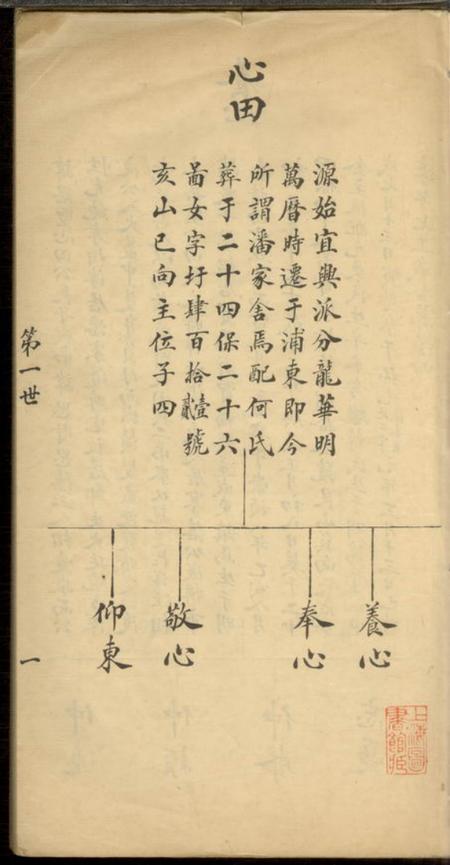 心田
源始宜興派分龍華明
萬曆時遷于浦東即今
所謂潘家舍焉配何氏
葬于二十四保二十六
啚女字圩肆百拾壹號
亥山已向主位子四
養心
奉心
敬心
仰東
第一世
一
上海圖書館藏